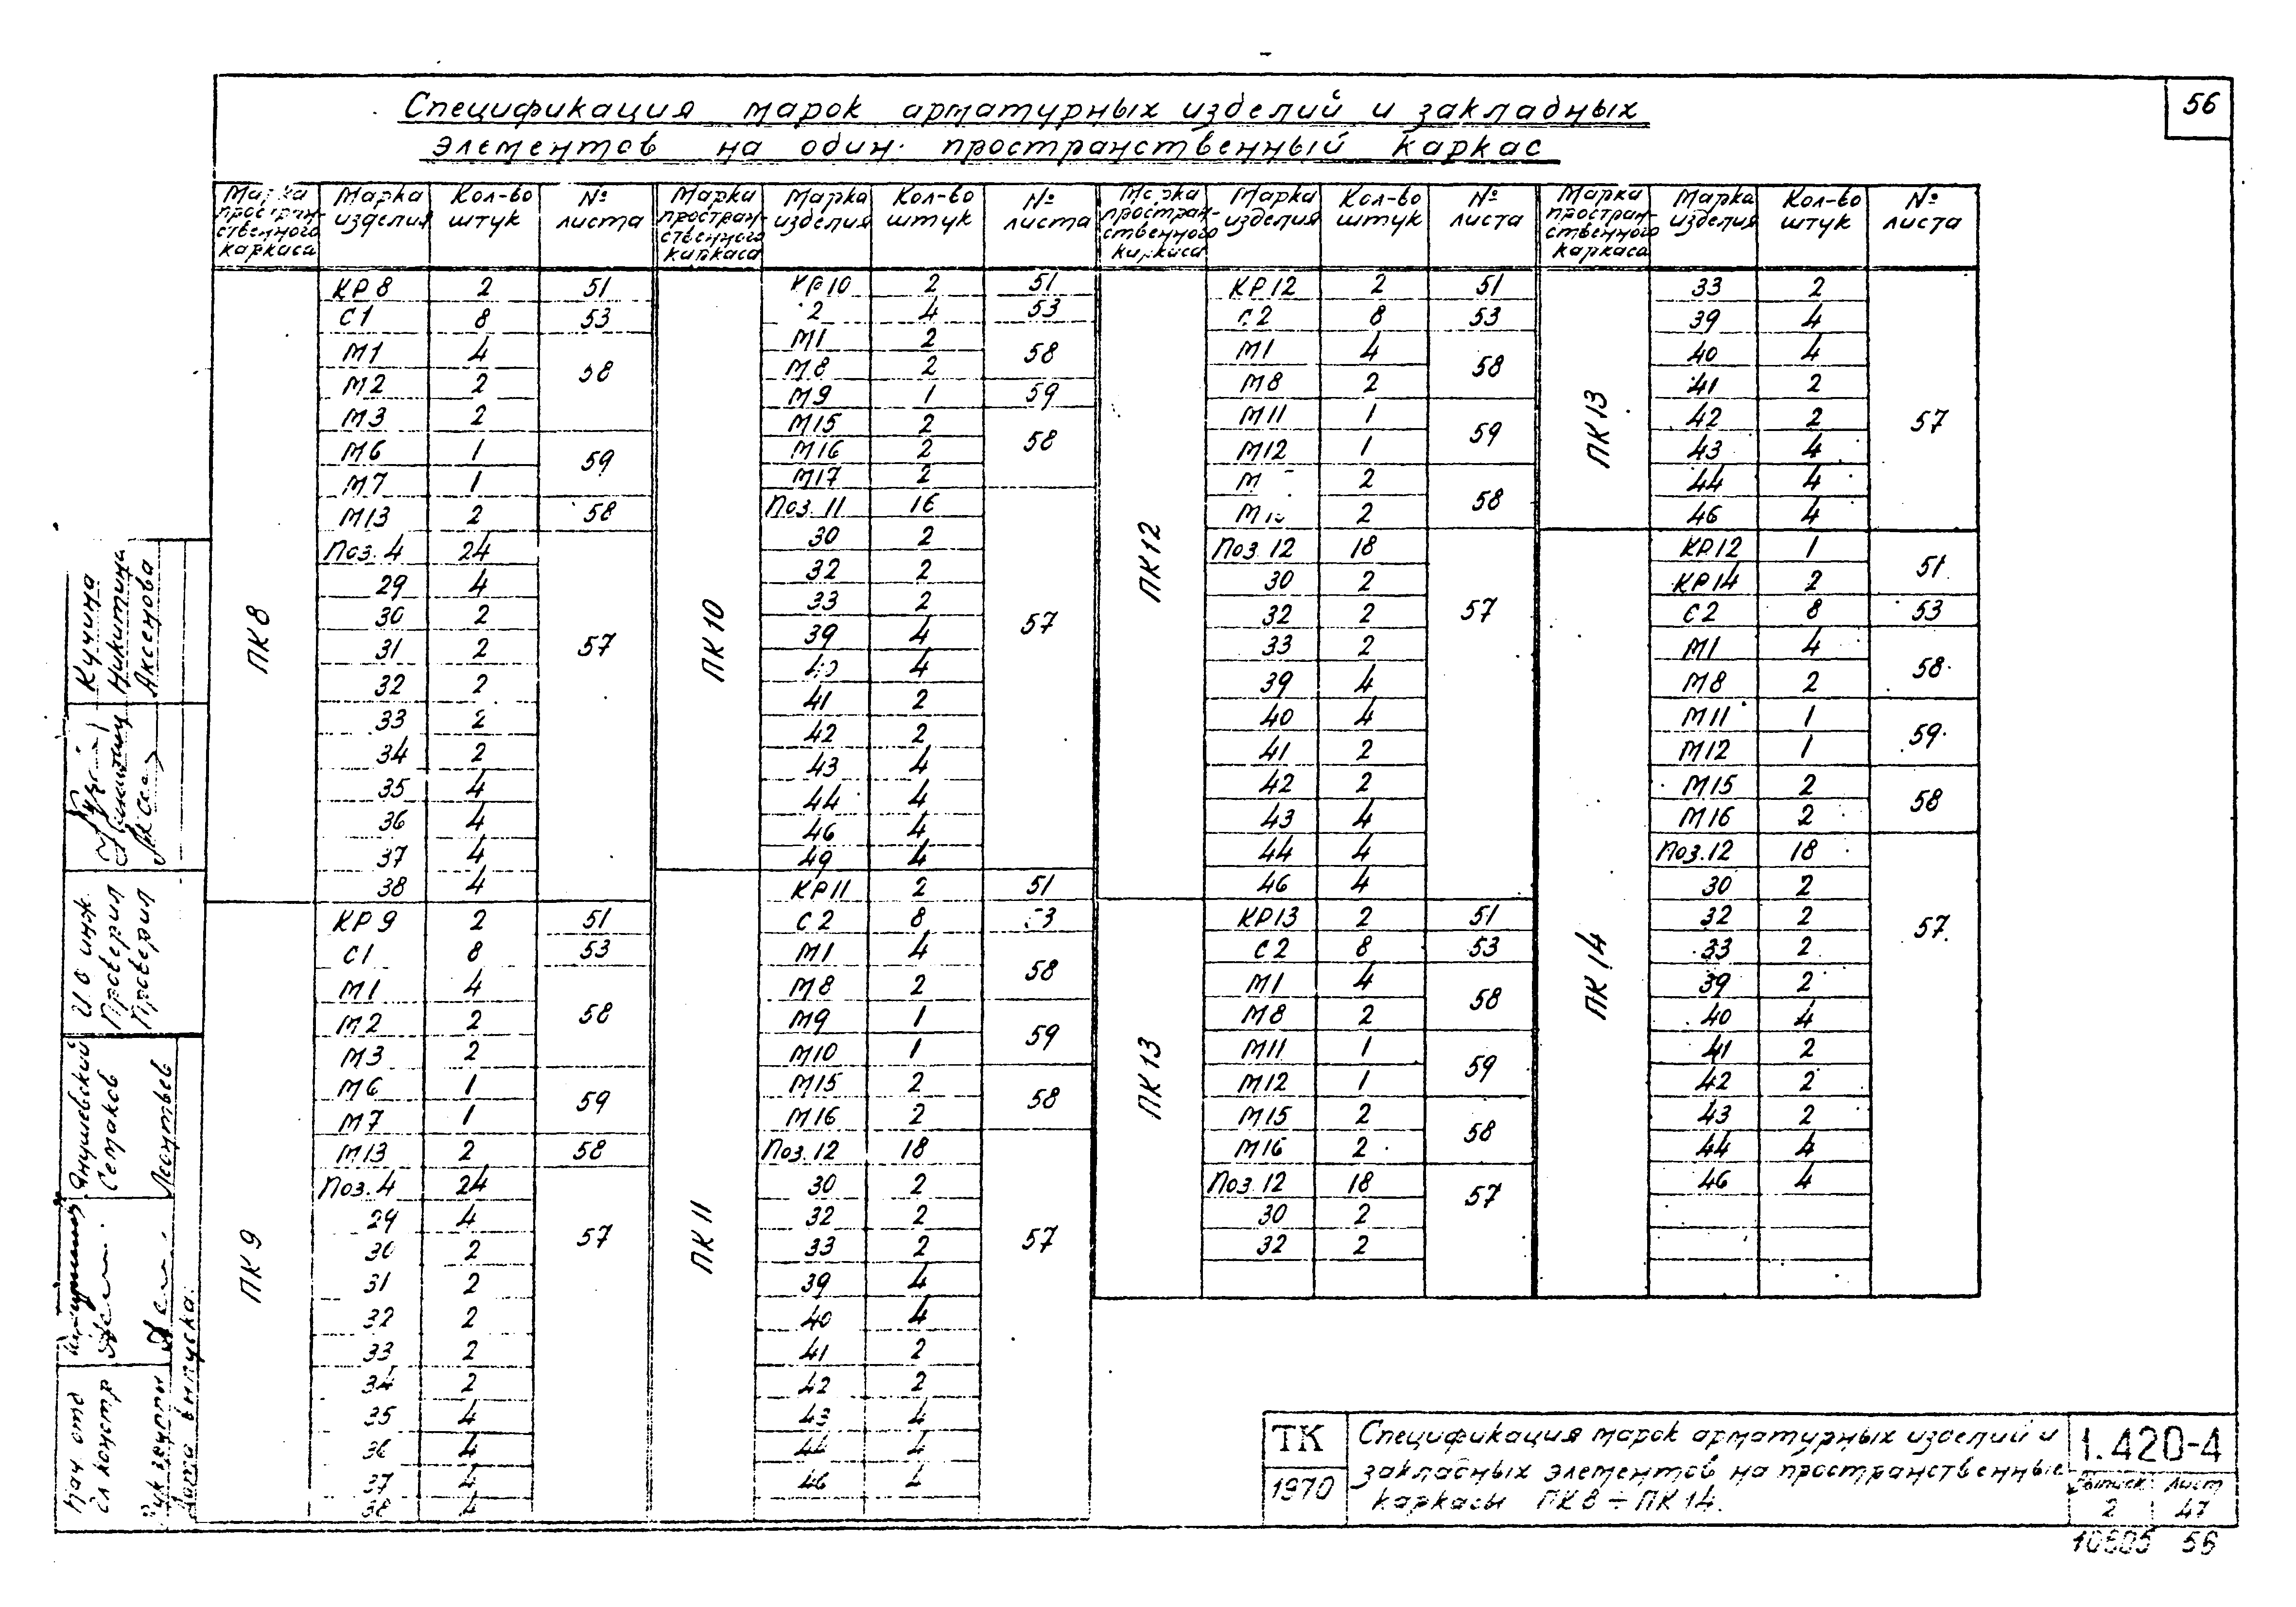 56
Спецификация марок арматурных изделий и закладных
элементов на один пространственный каркас
Марка пространственного каркаса Марка изделия Кол-во штук № листа
ПК 8
КР 8 2 51
С1 8 53
М1 4 58
М2 2
М3 2
М6 1 59
М7 1
М13 2 58
Поз. 4 24 57
29 4
30 2
31 2
32 2
33 2
34 2
35 4
36 4
37 4
38 4
ПК 9
КР 9 2 51
С1 8 53
М1 4 58
М2 2
М3 2
М6 1 59
М7 1
М13 2 58
Поз. 4 24 57
29 4
30 2
31 2
32 2
33 2
34 2
35 4
36 4
37 4
38 4
Марка пространственного каркаса Марка изделия Кол-во штук № листа
ПК 10
КР10 2 51
2 4 53
М1 2 58
М8 2
М9 1 59
М15 2 58
М16 2
М17 2
Поз. 11 16 57
30 2
32 2
33 2
39 4
40 4
41 2
42 2
43 4
44 4
46 4
49 4
ПК 11
КР11 2 51
С2 8 53
М1 4 58
М8 2
М9 1 59
М10 1
М15 2 58
М16 2
Поз. 12 18 57
30 2
32 2
33 2
39 4
40 4
41 2
42 2
43 4
44 4
46 4
Марка пространственного каркаса Марка изделия Кол-во штук № листа
ПК 12
КР12 2 51
С2 8 53
М1 4 58
М8 2
М11 1 59
М12 1
М 2 58
М1 2
Поз. 12 18 57
30 2
32 2
33 2
39 4
40 4
41 2
42 2
43 4
44 4
46 4
ПК 13
КР13 2 51
С2 8 53
М1 4 58
М8 2
М11 1 59
М12 1
М15 2 58
М16 2
Поз. 12 18 57
30 2
32 2
Марка пространственного каркаса Марка изделия Кол-во штук № листа
ПК 13
33 2 57
39 4
40 4
41 2
42 2
43 4
44 4
46 4
ПК 14
КР12 1 51
КР14 2
С2 8 53
М1 4 58
М8 2
М11 1 59
М12 1
М15 2 58
М16 2
Поз. 12 18 57
30 2
32 2
33 2
39 2
40 4
41 2
42 2
43 2
44 4
46 4
И о инж Кучина
Проверил Никитина
Проверил Аксенова
Нач отд Янушевский
Гл констр Семаков
Рук группы Леонтьев
Дата выпуска.
ТК
1970
Спецификация марок арматурных изделий и
закладных элементов на пространственные
каркасы ПК 8 ÷ ПК 14.
1.420-4
Выпуск Лист
2 47
56